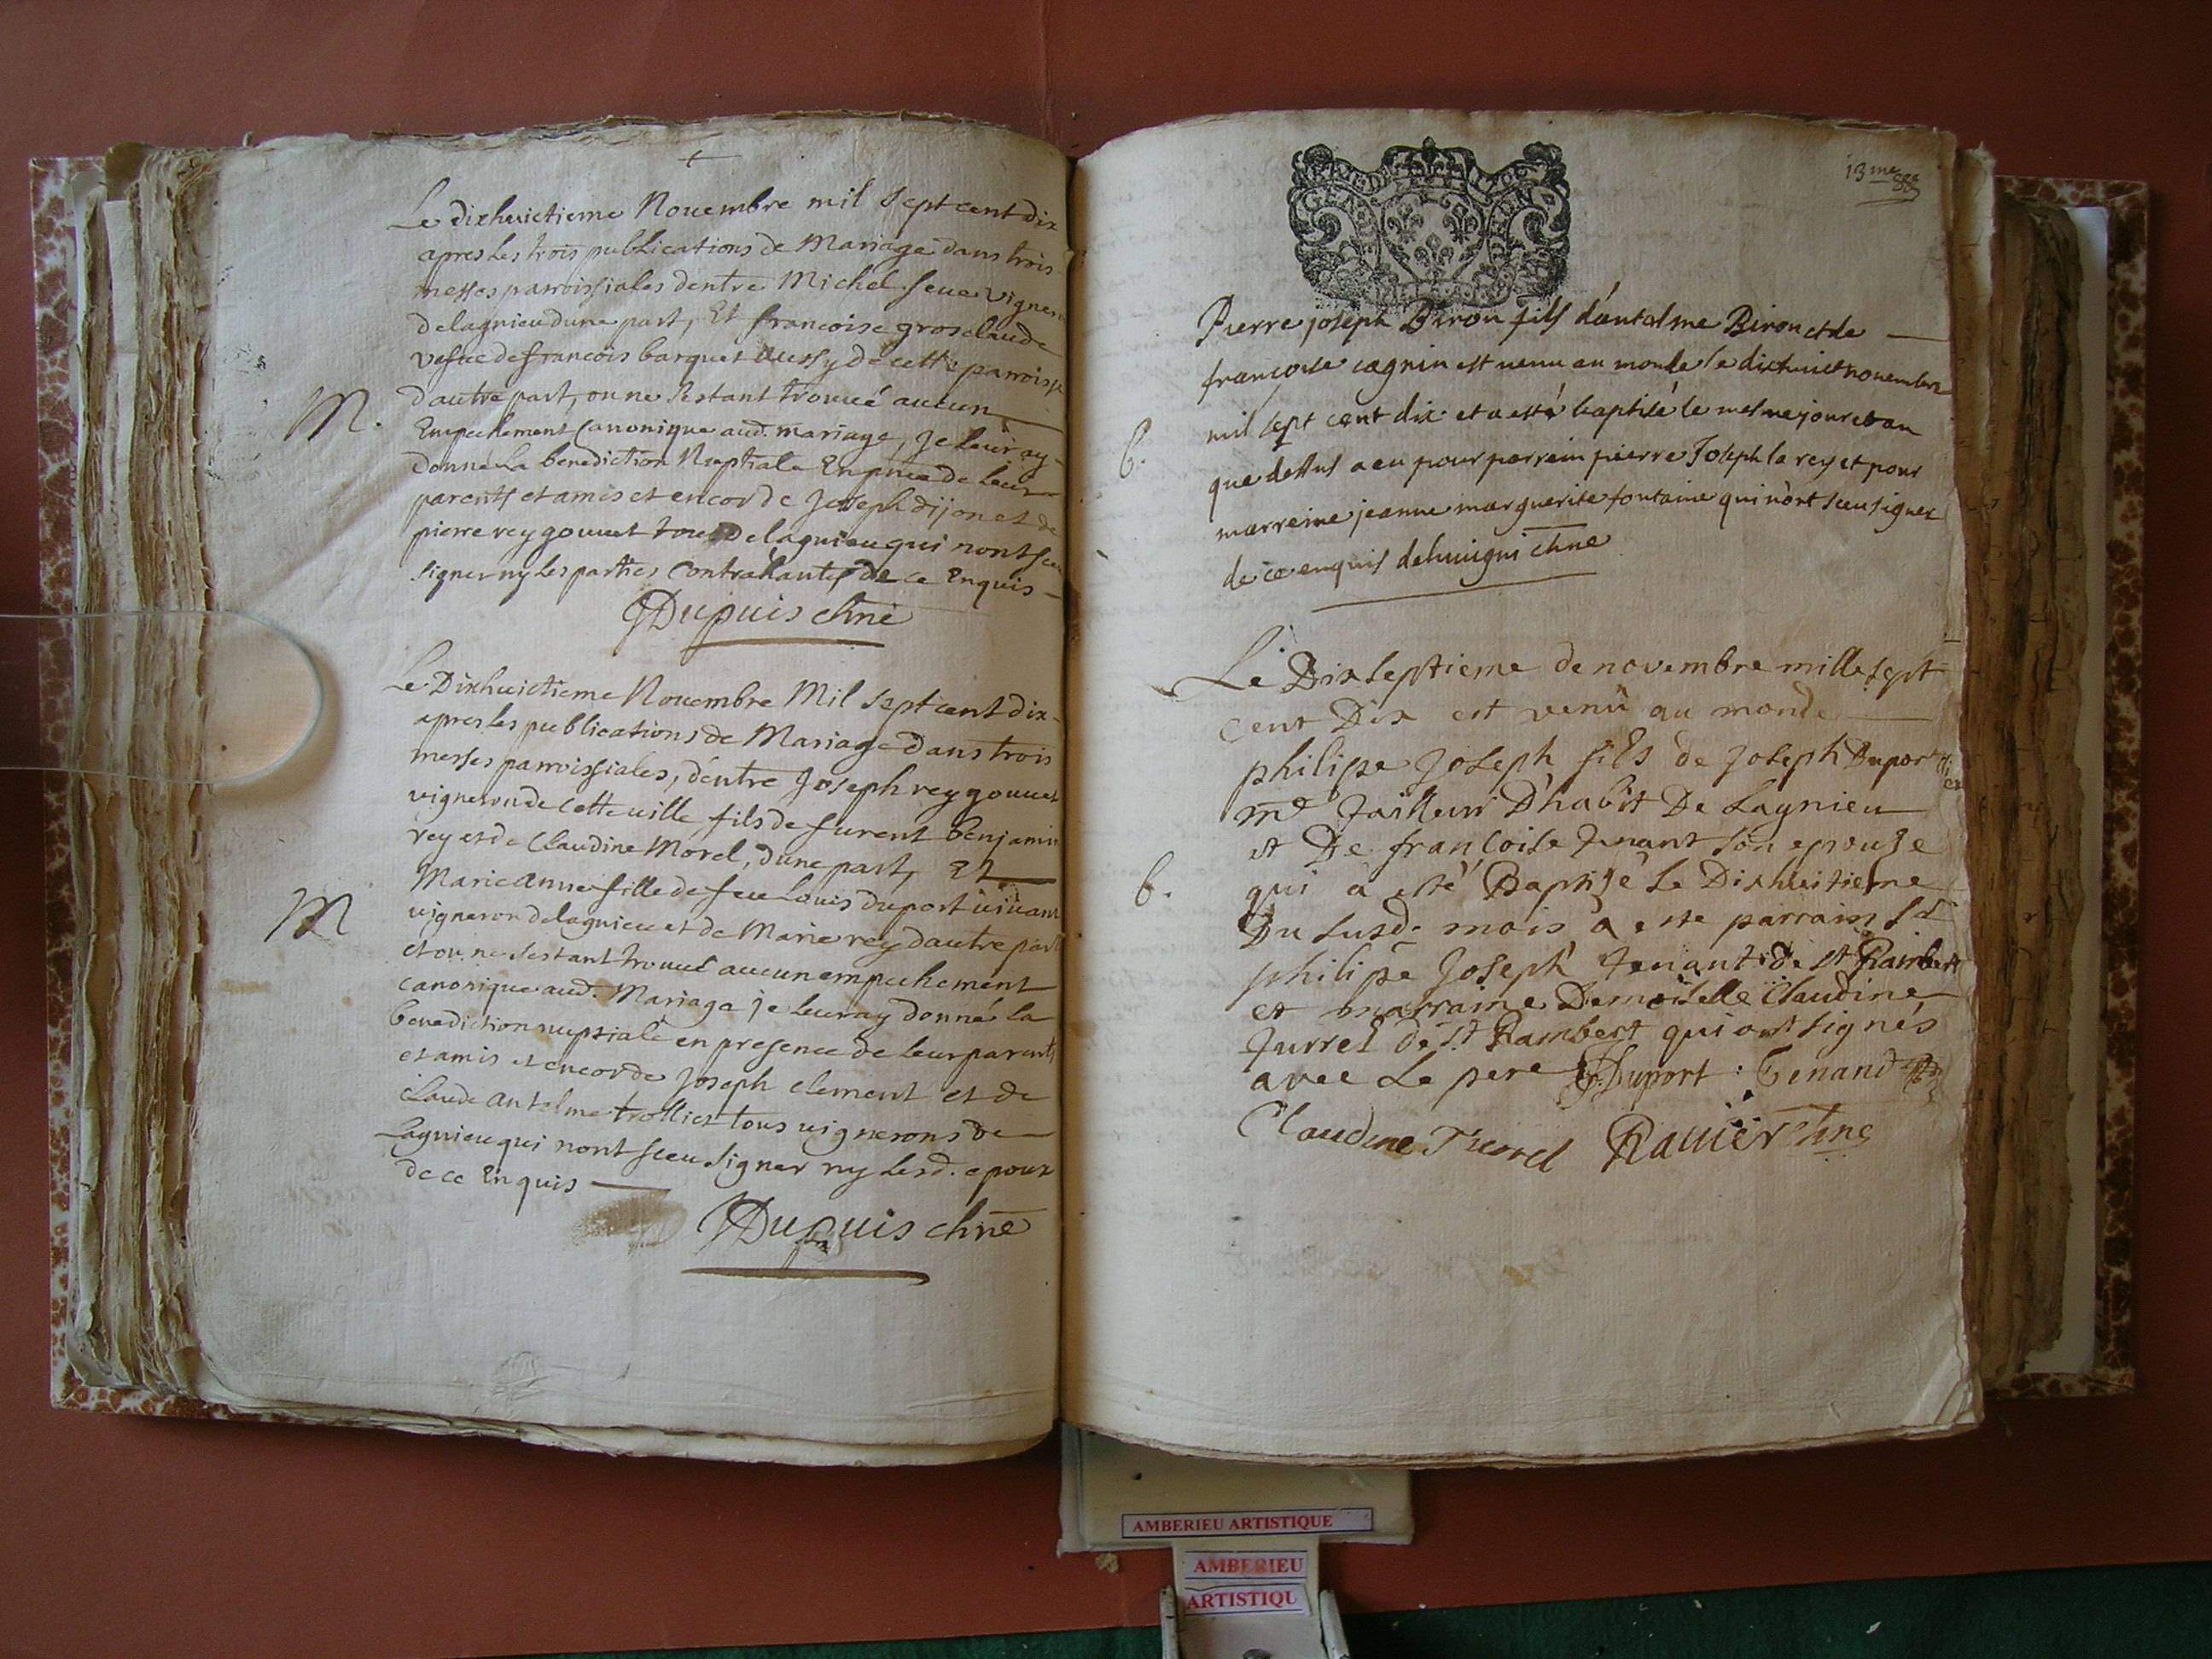 Le dixhuictieme Nouembre mil sept cent dix
apres les trois publications de Mariage dans trois
messes parroissiales dentre Michel seue vigneron
delagnieu dune part, Et francoise grosclaude
vefue de francois barquet aussy de cette parroisse
M.
dautre part, ou ne sestant trouué aucun
Empechement Canonique aud. mariage, Je leur ay
donné la benediction Nuptiale En pnce de leur
parents et amis et encor de Joseph dijon et de
pierre rey gouuet tous Delagnieu qui nont sceu
signer ny les parties Contrahantes de ce Enquis
Dupuis chne
Le Dixhuictieme Nouembre Mil sept cent dix
apres les publications de Mariage Dans trois
messes parroissiales, dentre Joseph rey gouuet
vigneron de cette uille fils de furent benjamin
rey et de Claudine Morel, dune part, Et
Marieanne fille de feu Louis duport uiuant
M
uigneron delagnieu et de Marie rey dautre part
et ou ne sestant trouué aucun empechement
canonique aud. Mariage je leuray donné la
benediction nuptiale en presence de leur parents
et amis et encor de Joseph clement et de
claude antelme trolliet tous uignerons de
Lagnieu qui nont sceu signer ny lesd. epoux
de ce Enquis
Dupuis chne
13me
Pierre joseph Biron fils dantelme Biron et de
francoise cagnin est uenu au monde le dixhuict nouembre
mil sept cent dix et a esté baptisé le mesme jour et an
b.
que dessus a eu pour parrein pierre Joseph la rey et pour
marreine jeanne marguerite fontaine qui n'ont sceu signer
de ce enquis chne
Le Dixseptieme de novembre mille sept
cent Dix est venu au monde
philipe Joseph fils de Joseph Duport
me Tailleur D'habit De Lagnieu
et De francoise Tenant son epouse
b.
qui a esté Baptisé Le Dixhuitieme
Du susd. mois a este parrain Sr
philipe Joseph Tenant de St Rambert
et marraine Demoiselle Claudine
Jurrel de St Rambert qui ont signés
avec Le pere Duport : Tenand
Claudine Rauier chne
AMBERIEU ARTISTIQUE
AMBERIEU
ARTISTIQU